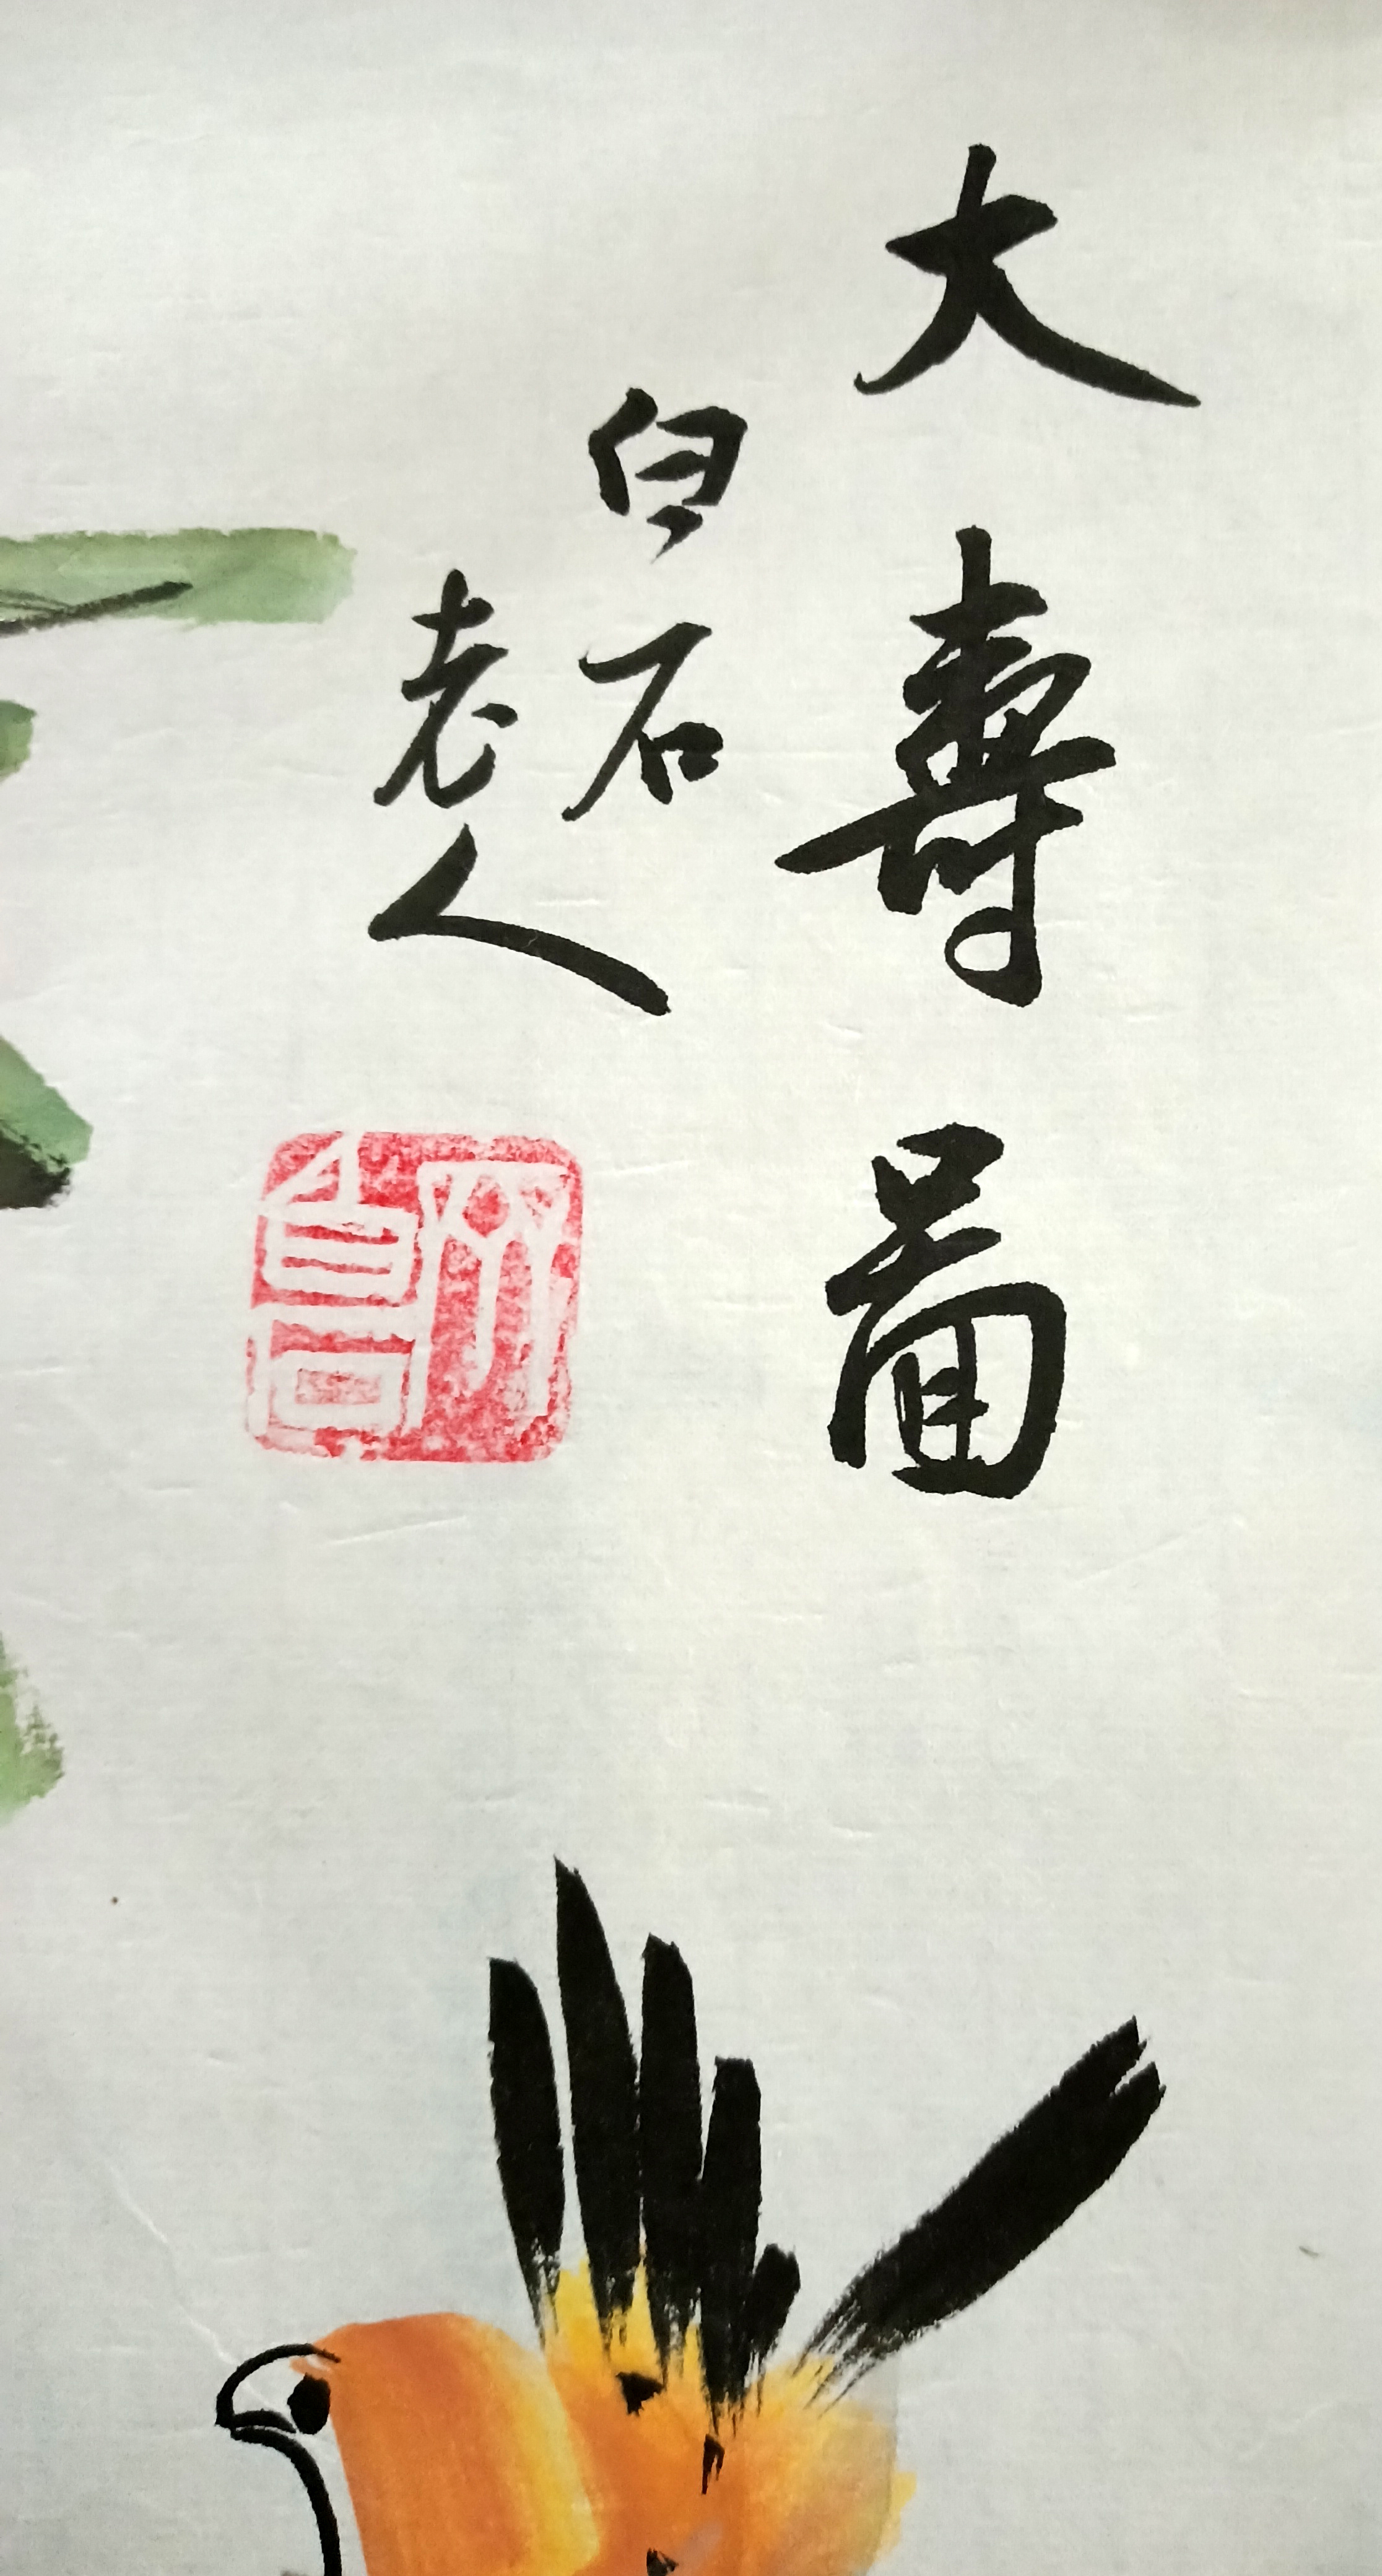 大壽圖
白石
老人
齊白石